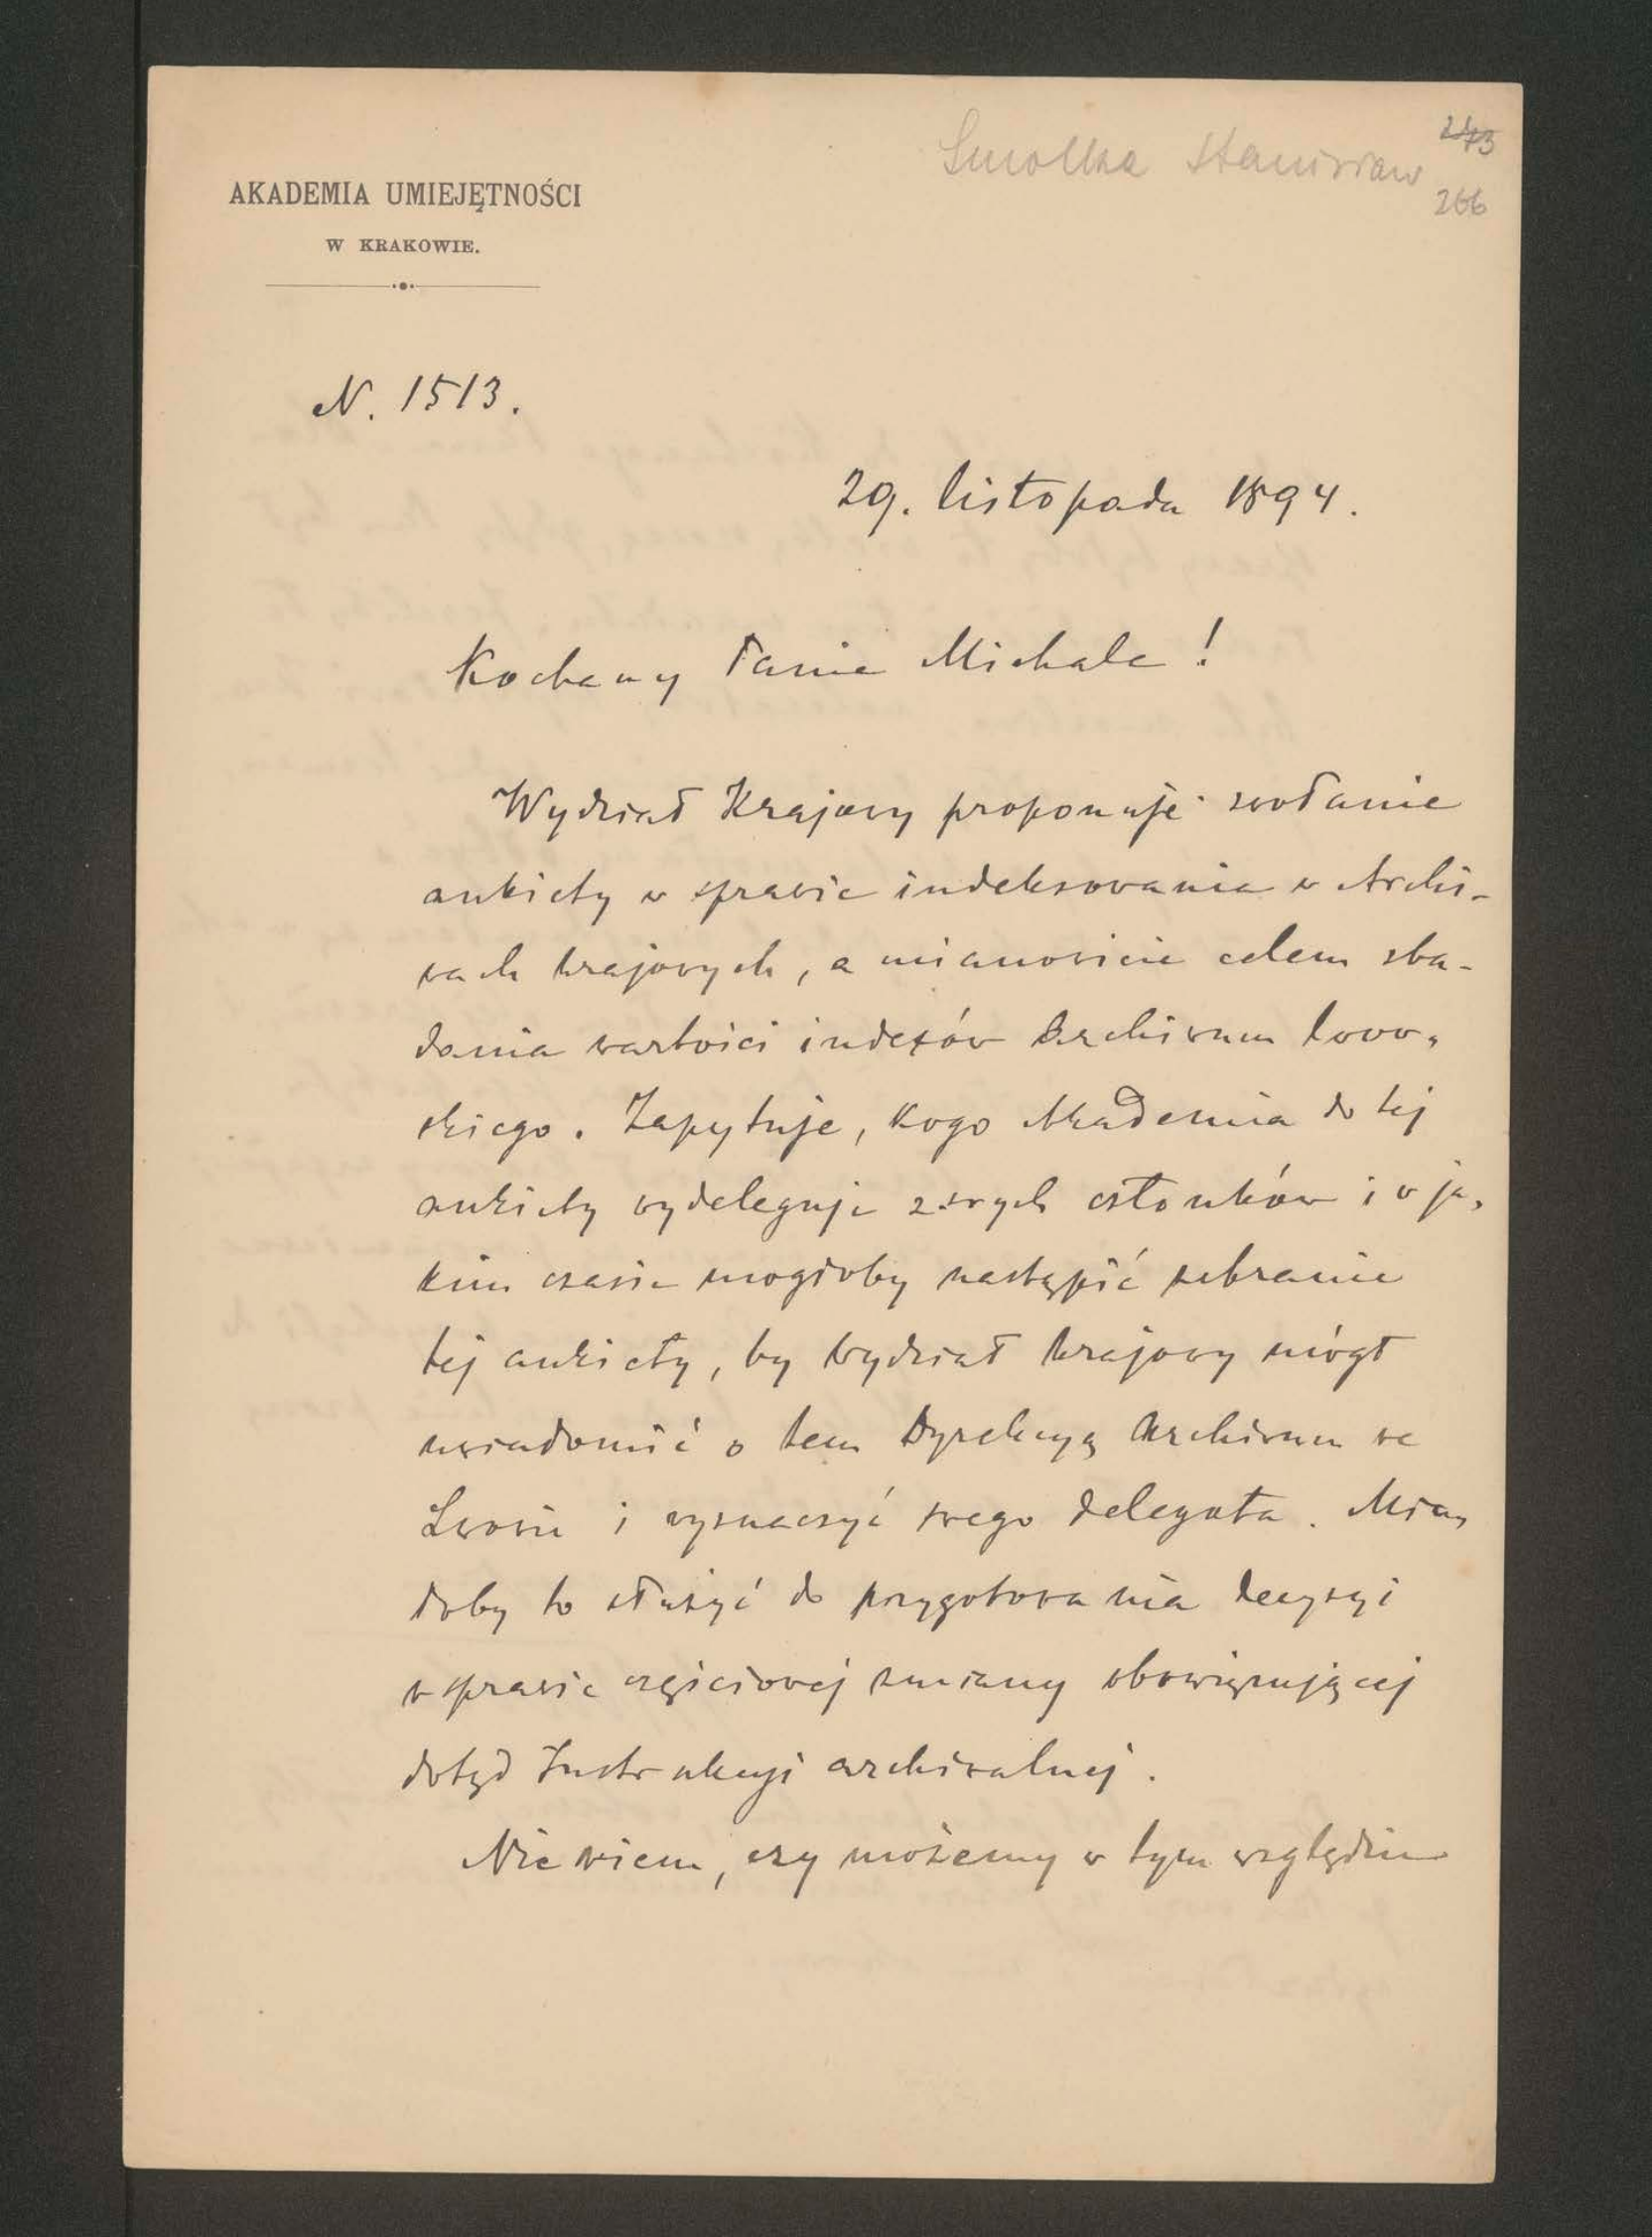 Smolka Stanisław
273
266
AKADEMIA UMIEJĘTNOŚCI
W KRAKOWIE.
N. 1513.
29. listopada 1894.
Kochany Panie Michale!
Wydział Krajowy proponuje zwołanie
ankiety w sprawie indeksowania w Archi-
wach krajowych, a mianowicie celem zba-
dania wartości indexów Archiwum lwow-
skiego. Zapytuje, kogo Akademia do tej
ankiety wydeleguje z swych członków i w ja-
kim czasie mogłoby nastąpić zebranie
tej ankiety, by Wydział krajowy mógł
uwiadomić o tem Dyrekcyą Archiwum we
Lwowie i wyznaczyć swego delegata. Mia-
łoby to służyć do przygotowania decyzyi
w sprawie częściowej zmiany obowiązującej
dotąd Instrukcyi archiwalnej.
Nie wiem, czy możemy w tym względzie